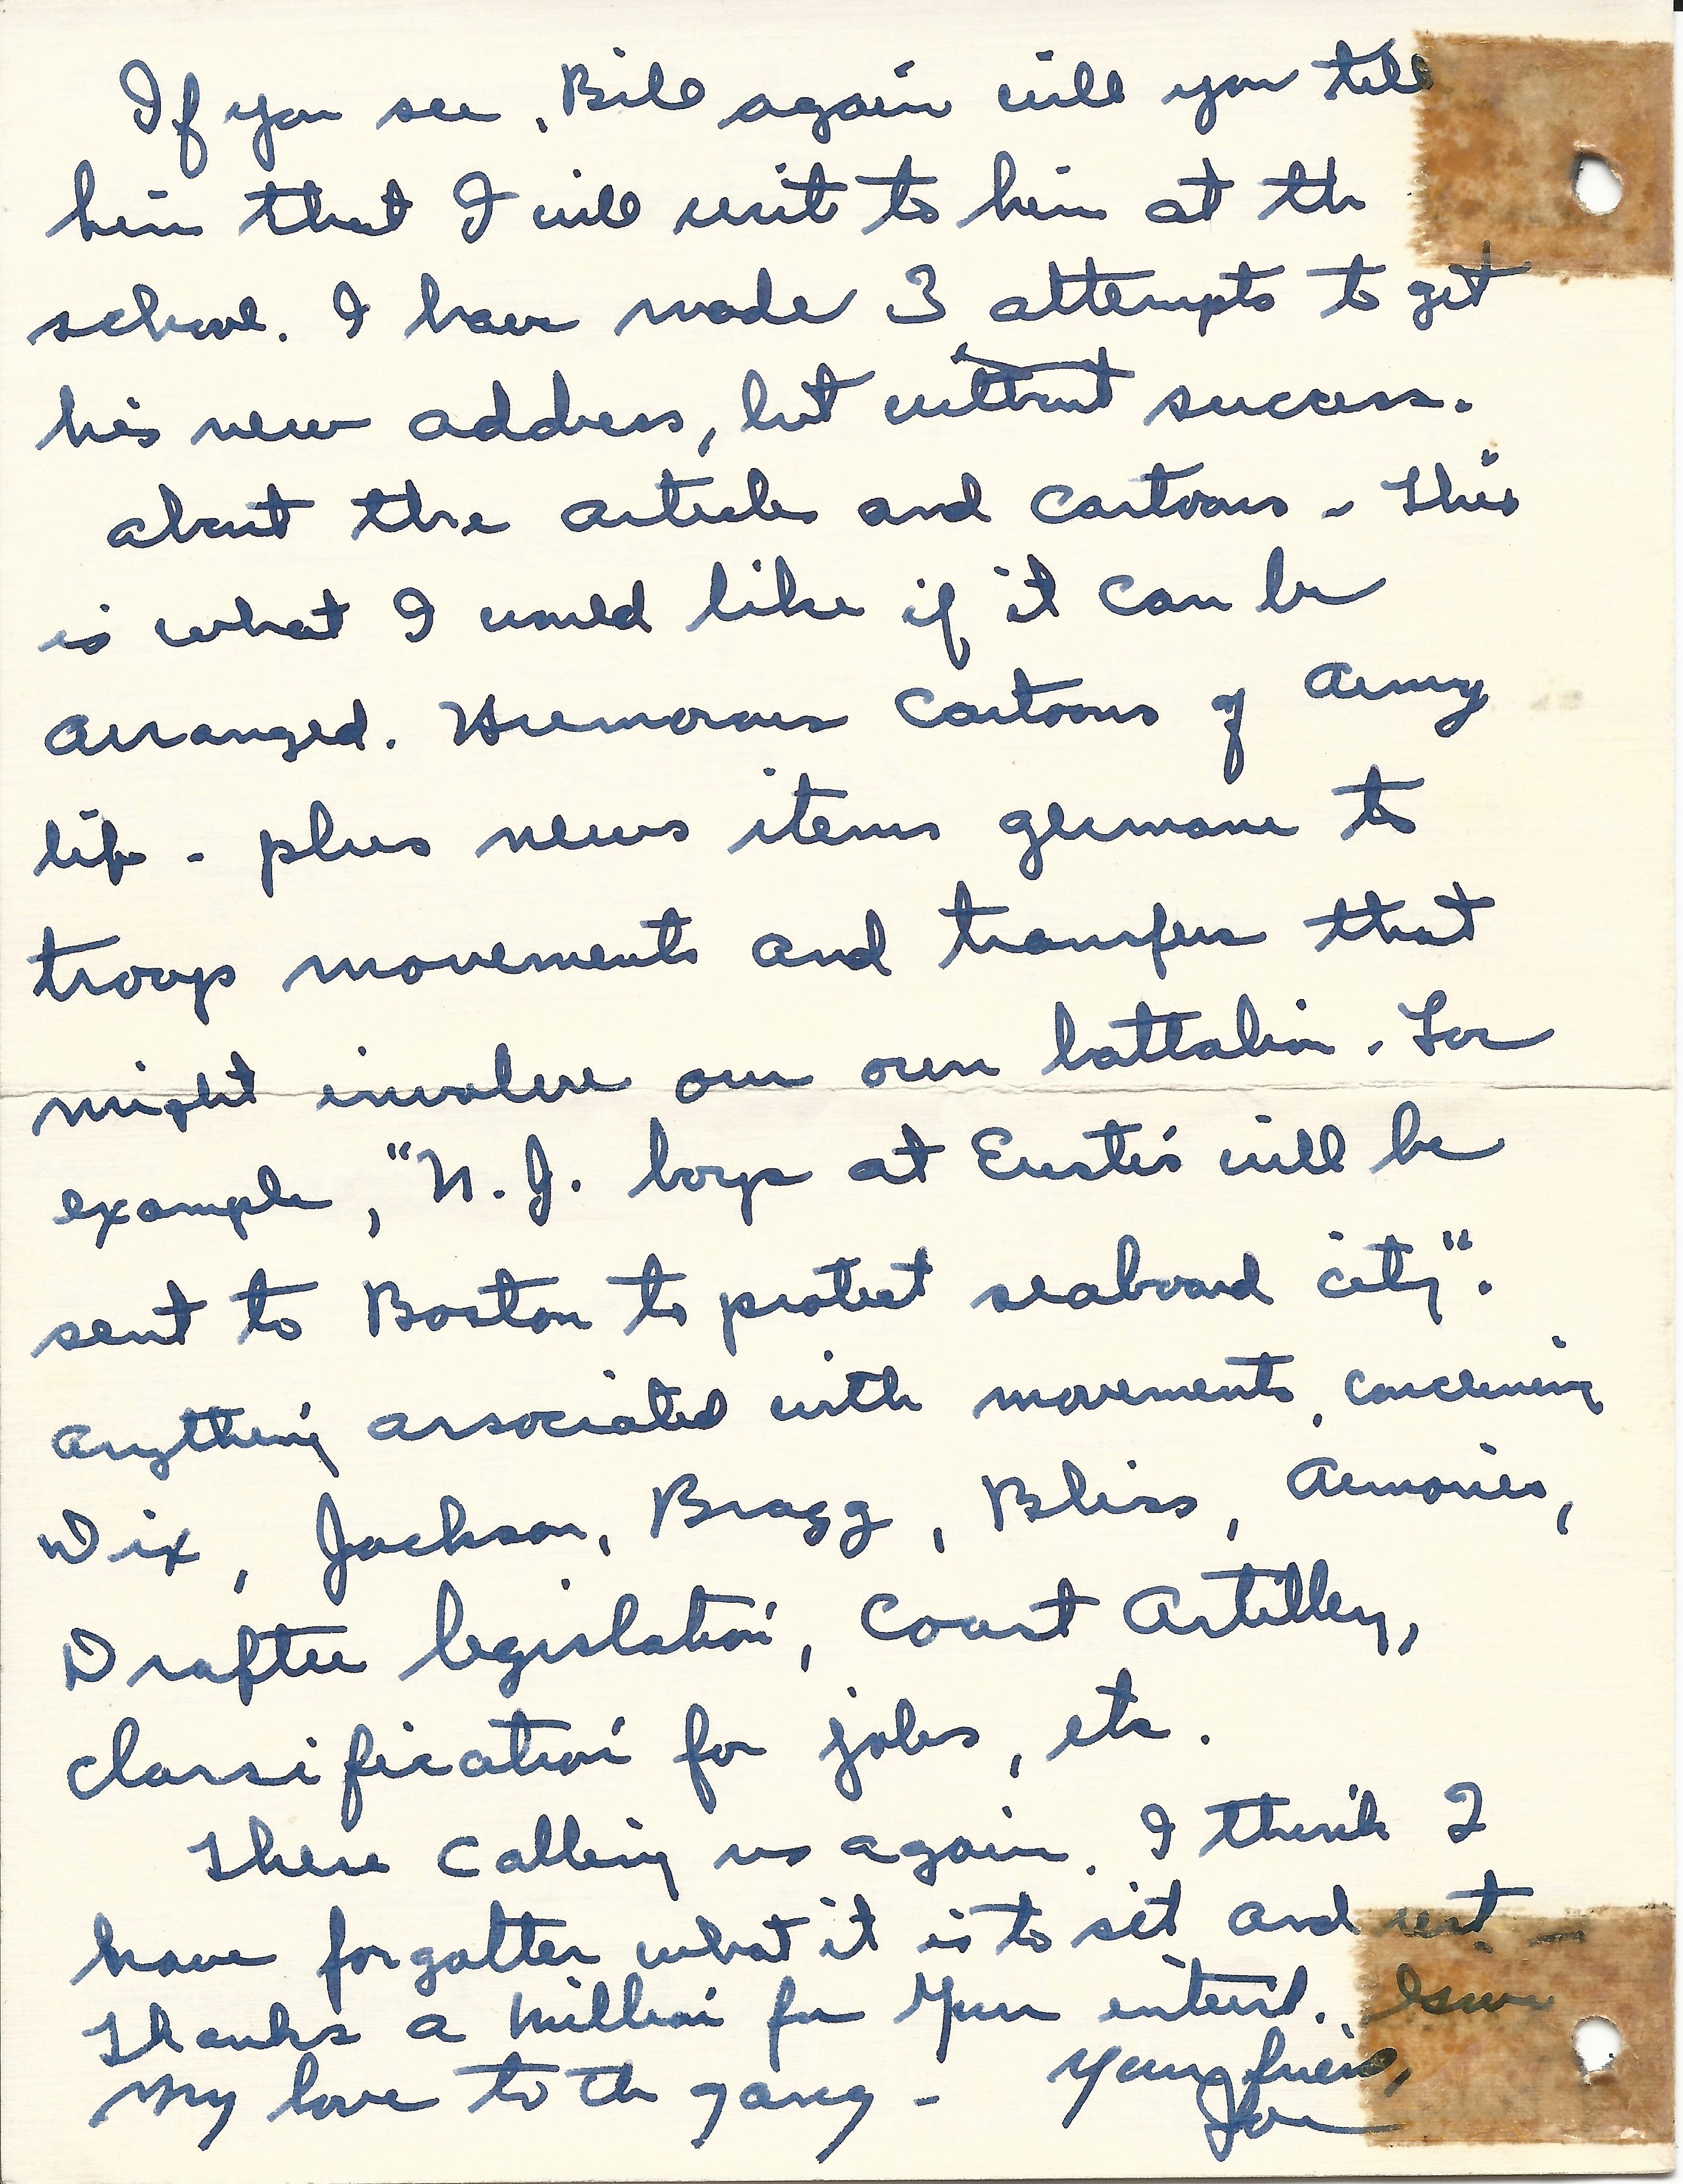 If you see, Bill again will you tell
him that I will write to him at the
school. I have made 3 attempts to get
his new address, but without success.
about the articles and cartoons - This
is what I would like if it can be
arranged. Humorous cartoons of Army
life - plus news items germane to
troops movements and transfers that
might involve our own battalion. For
example, "N.J. boys at Eustis will be
sent to Boston to protect seaboard city".
Anything associated with movements, concerning
Dix, Jackson, Bragg, Bliss, Armories,
Draftee legislation, Coast Artillery,
classification for jobs, etc.
There calling us again. I think I
have forgotten what it is to sit and rest -
Thanks a million for your interest. Give
My love to the gang - Your friend,
Joe